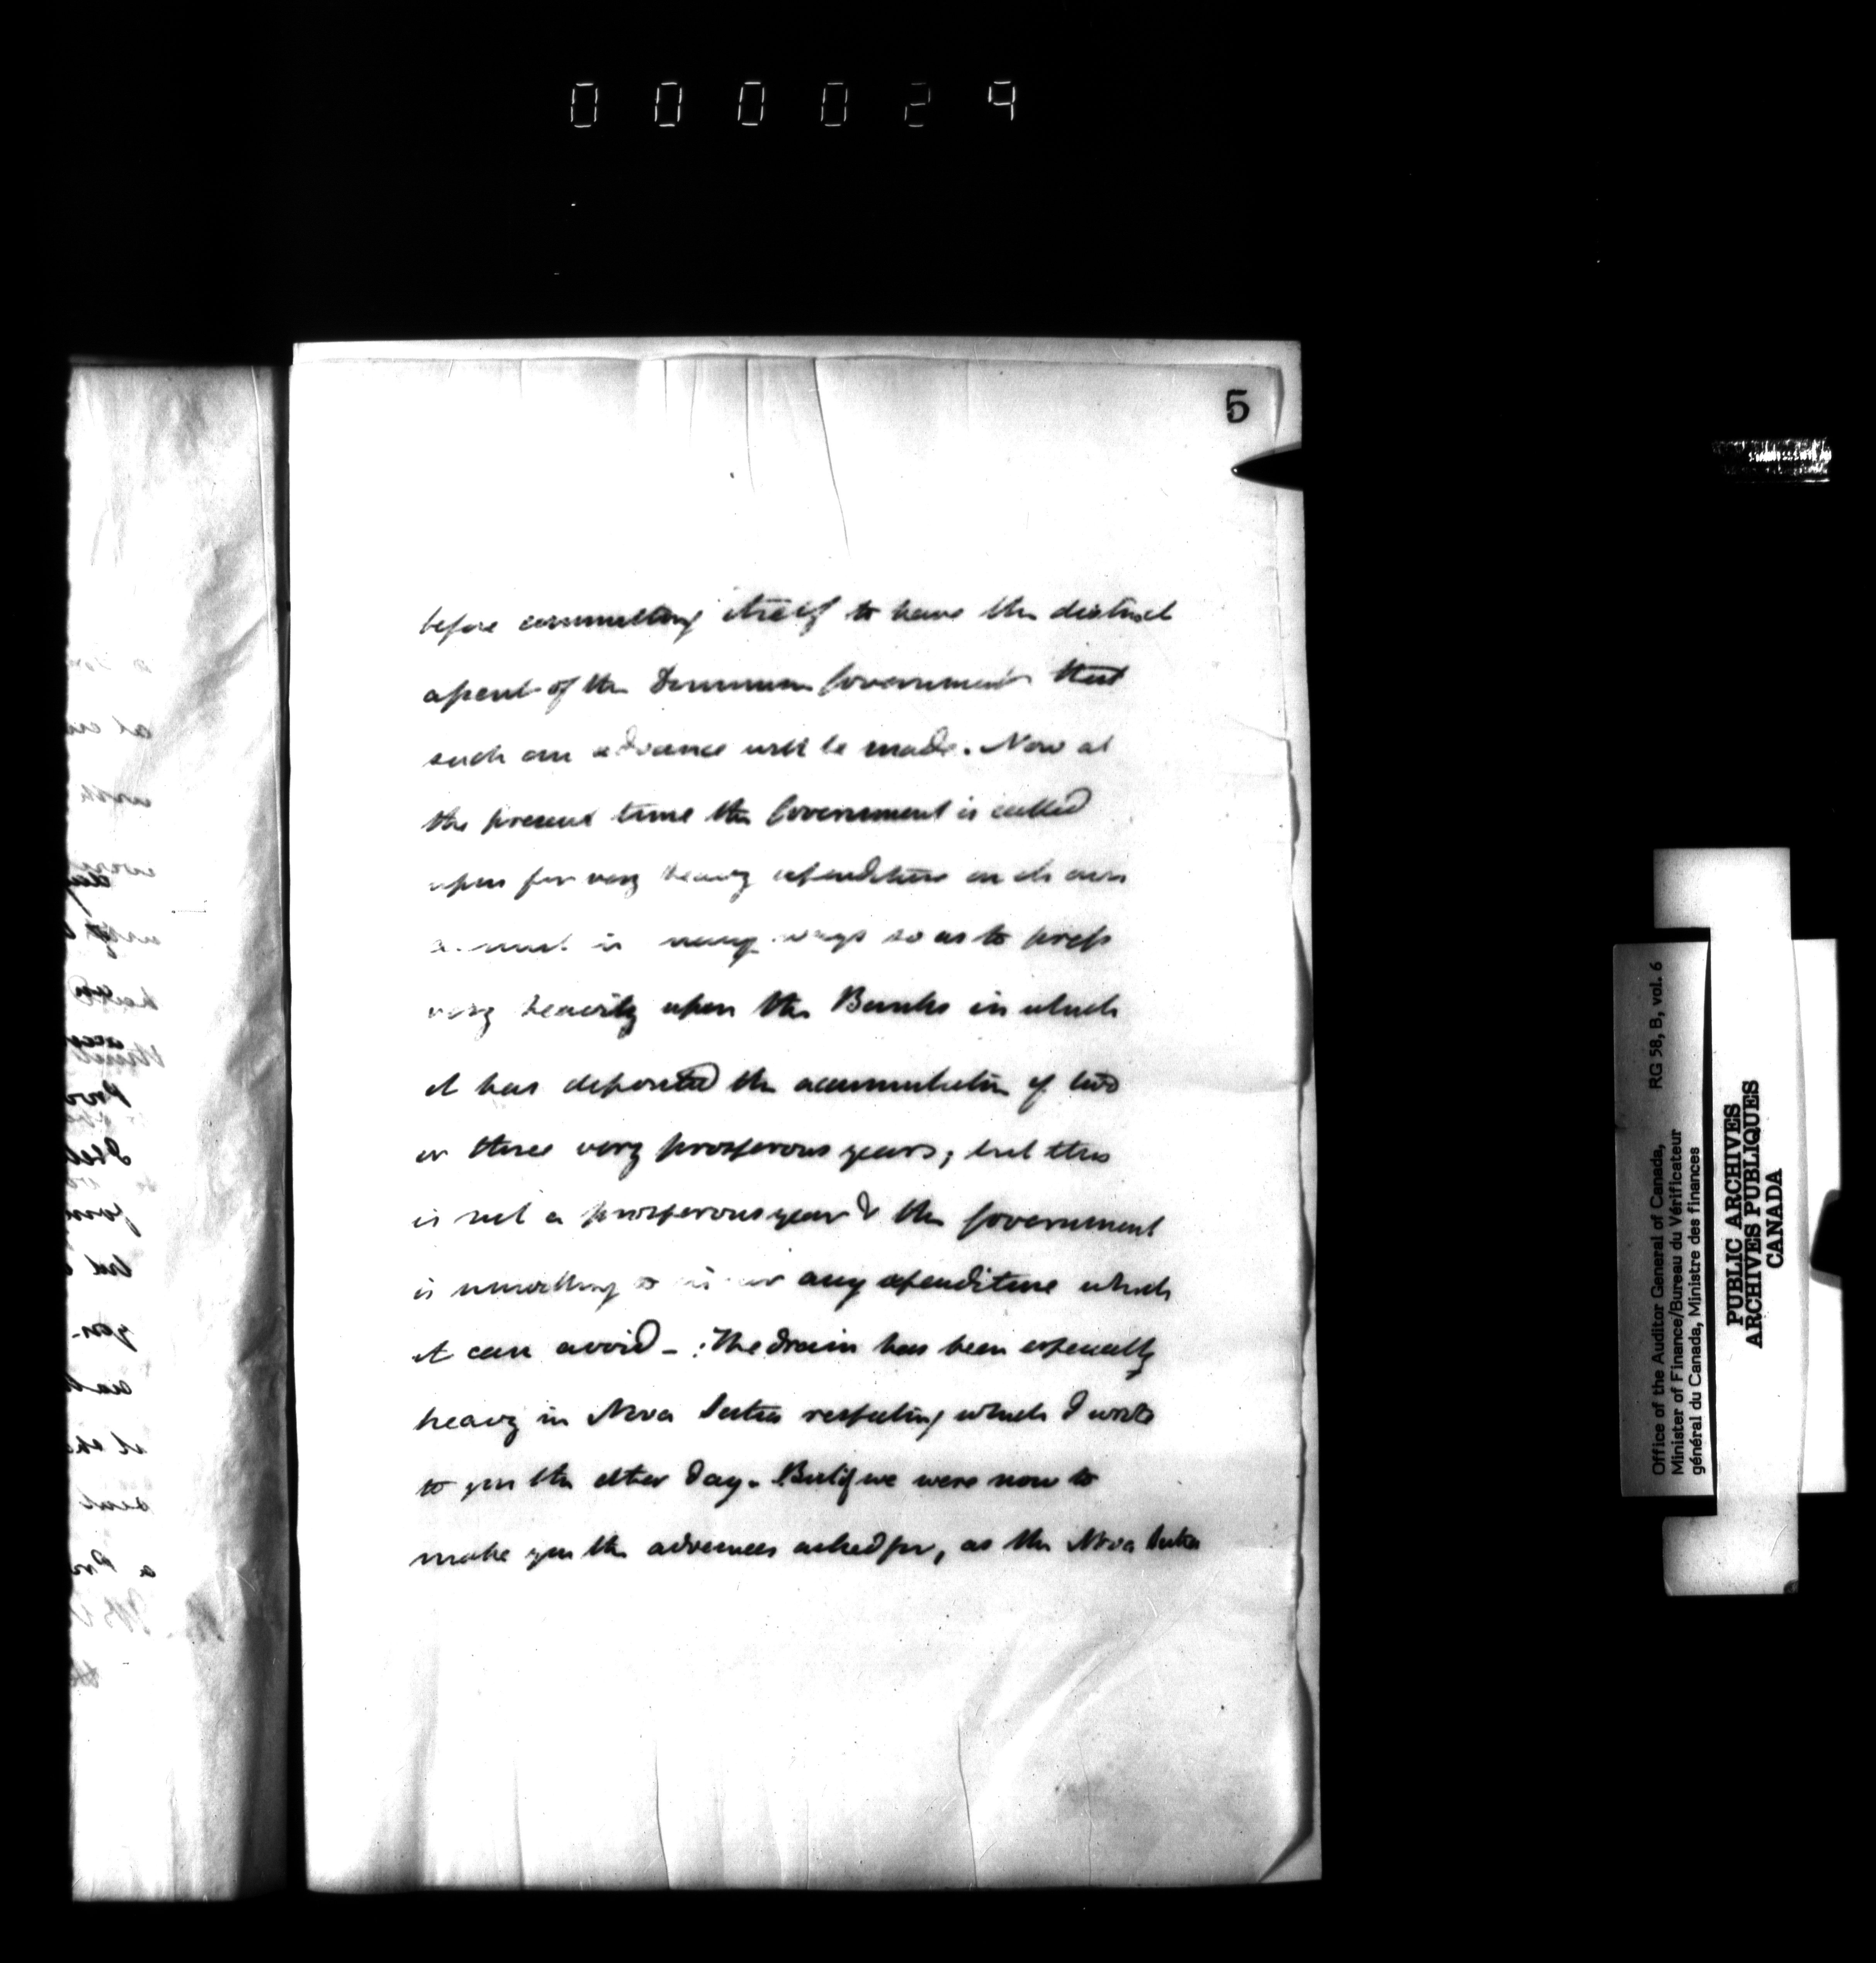 000029
5
before committing itself to have the distinct
assent of the Dominion Government that
such an advance will be made. Now at
the present time the Government is called
upon for very heavy expenditure on its own
account in many ways so as to press
very heavily upon the Banks in which
it has deposited the accumulation of two
or three very prosperous years; but this
is not a prosperous year & the Government
is unwilling to incur any expenditure which
it can avoid - The drain has been especially
heavy in Nova Scotia respecting which I wrote
to you the other day. But if we were now to
make you the advances asked for, as the Nova Scotia
Office of the Auditor General of Canada, RG 58, B, vol. 6
Minister of Finance/Bureau du Vérificateur
général du Canada, Ministre des finances
PUBLIC ARCHIVES
ARCHIVES PUBLIQUES
CANADA